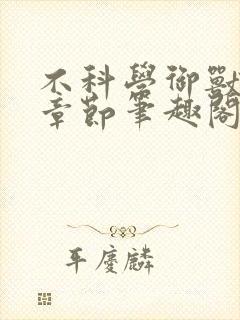 不科学御獸
章節筆趣閣
平慶麟